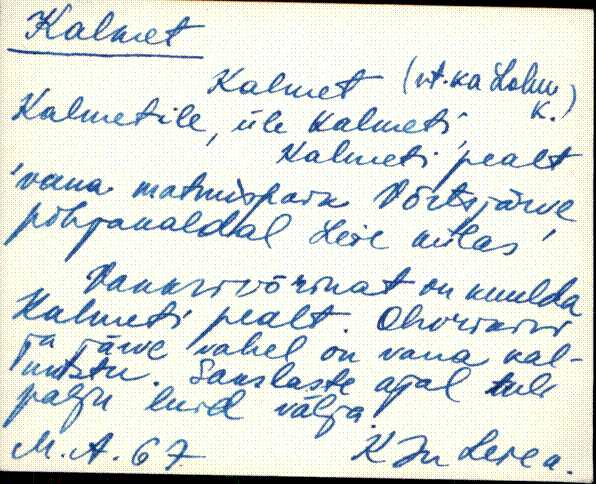 Kalmet
Kalmet (vt. ka Lohu k.)
Kalmetile, üle Kalmeti,
Kalmeti pealt
'vana matmispaik Võrtsjärve
põhjakaldal Leie külas'
Vankrivõrinat on kuulda
Kalmeti pealt. Ohvrikivi
ja järve vahel on vana kal-
mistu. Sakslaste ajal tuli
palju luid välja.
M. A. 67 KJn Leie a.